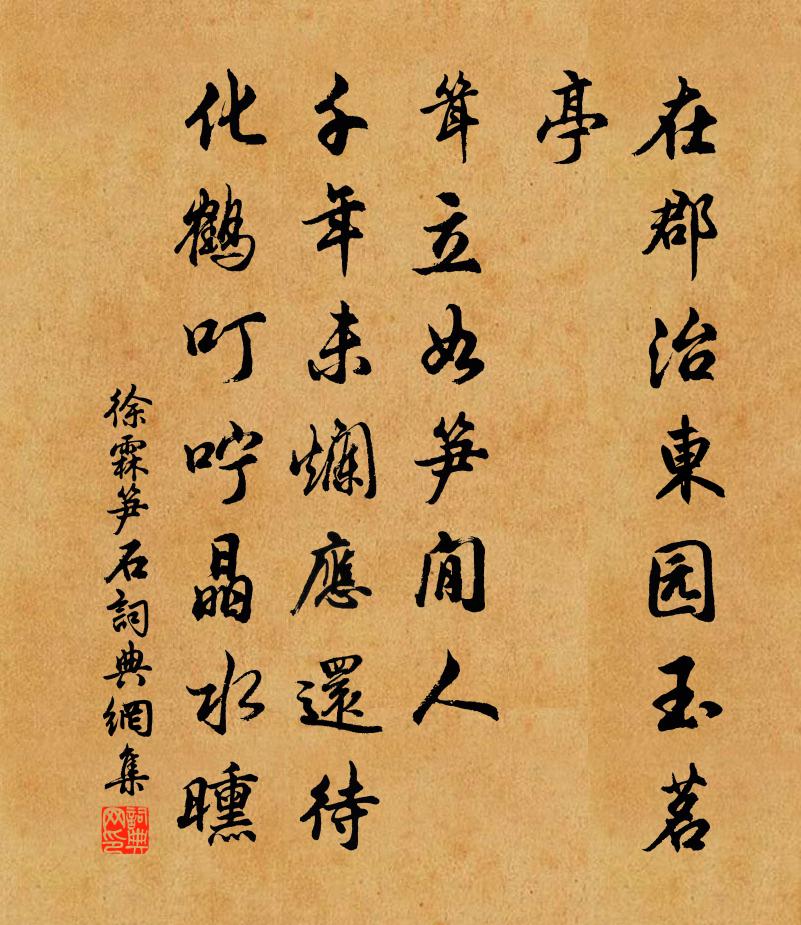 在郡治東园玉茗
亭
耸立如笋閒人
千年未爛應還待
化鶴叮咛晶水曛
徐霖笋石詞典網集
詞典网印